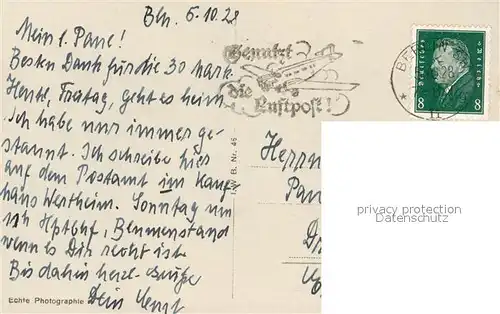 Bln. 5.10.28
Mein l. Paul!
Besten Dank für die 30 Mark.
Heute, Freitag, geht es heim
Ich habe nur immer ge-
staunt. Ich schreibe hier
auf dem Postamt im Kauf-
haus Wertheim. Sonntag um
11h Hptbhf, Blumenstand
wenn es Dir recht ist.
Bis dahin herzl. Grüße
Dein
Echte Photographie
Benutzt
die Luftpost!
BERLIN
28
Deutsches Reich
8 8
Nr. 46
Herrn
privacy protection
Datenschutz